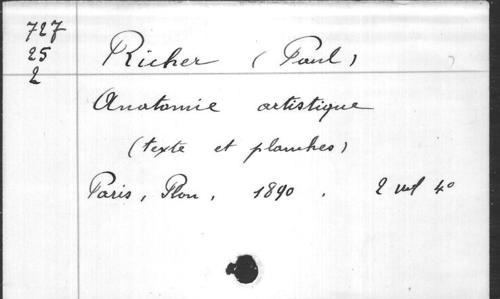 727
25
2
Richer (Paul)
Anatomie artistique
(texte et planches)
Paris, Plon, 1890. 2 vol 4°